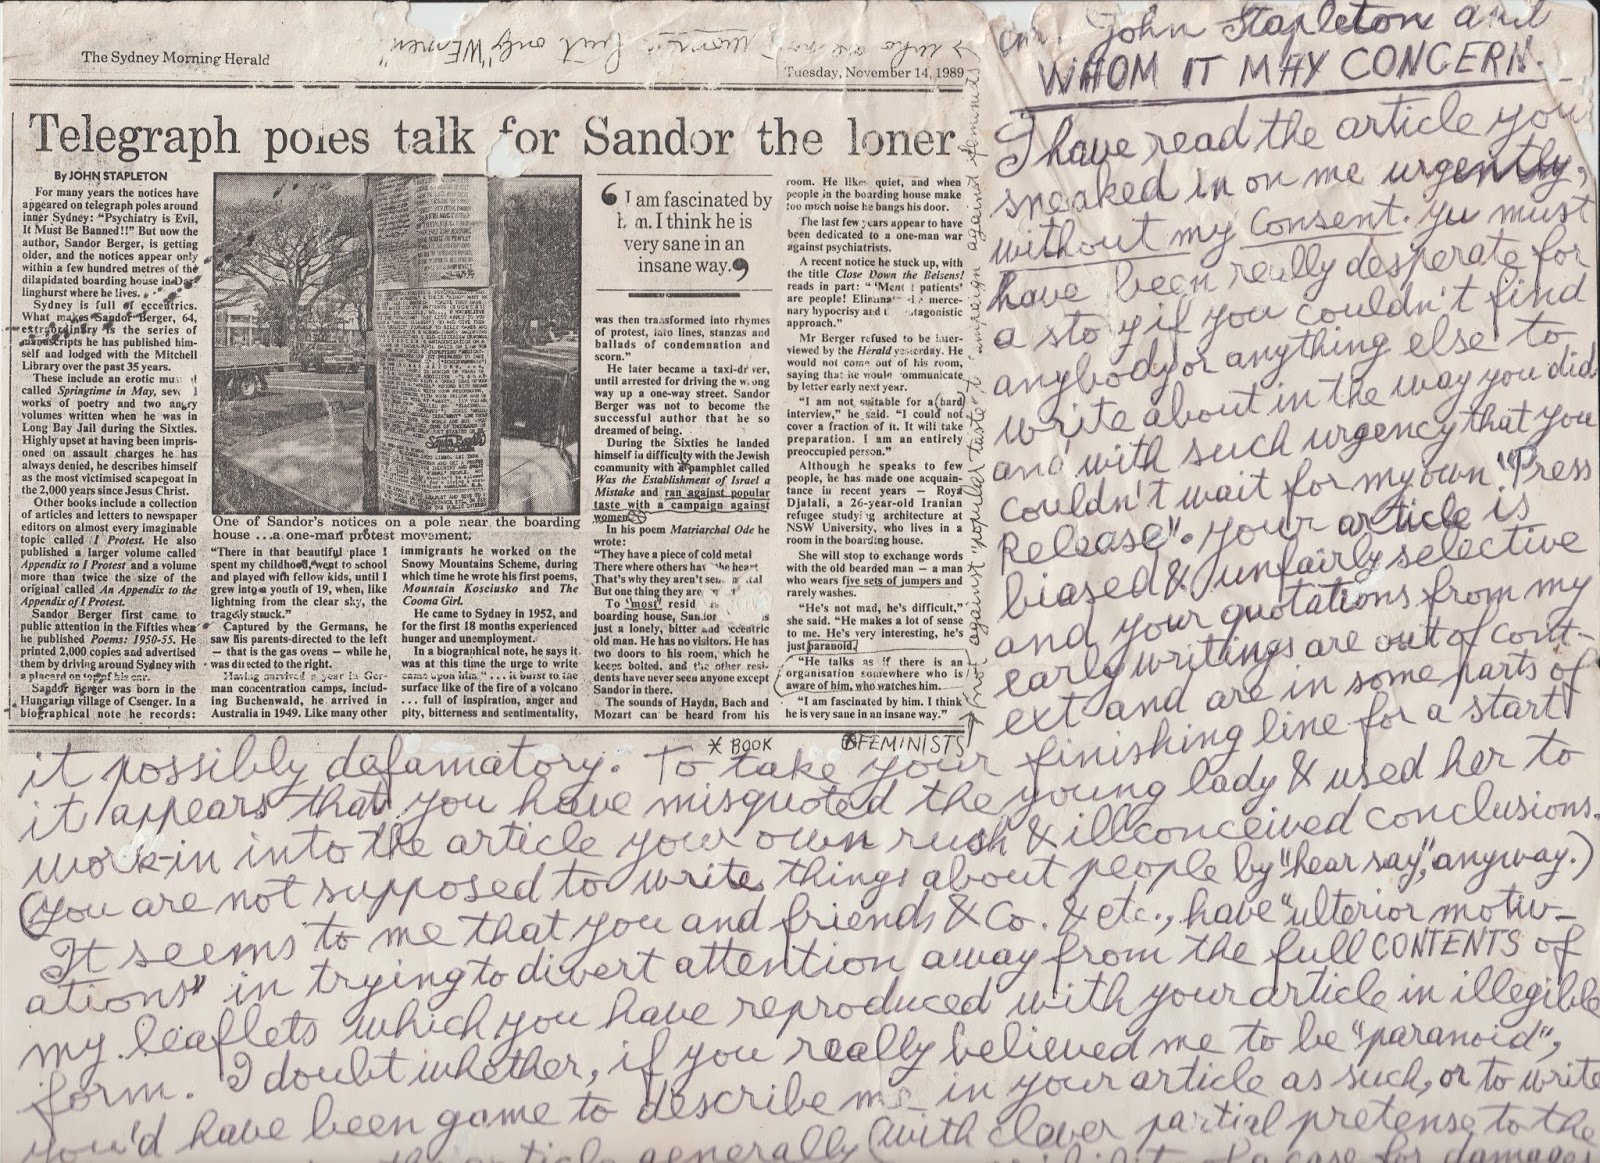 The Sydney Morning Herald
Tuesday, November 14, 1989
who are not but only "WEmen"
Telegraph poles talk for Sandor the loner
By JOHN STAPLETON
For many years the notices have
appeared on telegraph poles around
inner Sydney: "Psychiatry is Evil,
It Must Be Banned!!" But now the
author, Sandor Berger, is getting
older, and the notices appear only
within a few hundred metres of the
dilapidated boarding house in Dar-
linghurst where he lives.
Sydney is full of eccentrics.
What makes Sandor Berger, 64,
extraordinary is the series of
manuscripts he has published him-
self and lodged with the Mitchell
Library over the past 35 years.
These include an erotic
called Springtime in May,
works of poetry and two angry
volumes written when he was in
Long Bay Jail during the Sixties.
Highly upset at having been impris-
oned on assault charges he has
always denied, he describes himself
as the most victimised scapegoat in
the 2,000 years since Jesus Christ.
Other books include a collection
of articles and letters to newspaper
editors on almost every imaginable
topic called I Protest. He also
published a larger volume called
Appendix to I Protest and a volume
more than twice the size of the
original called An Appendix to the
Appendix of I Protest.
Sandor Berger first came to
public attention in the Fifties when
he published Poems: 1950-55. He
printed 2,000 copies and advertised
them by driving around Sydney with
a placard on top of his car.
Sandor Berger was born in the
Hungarian village of Csenger. In a
biographical note he records:
One of Sandor's notices on a pole near the boarding
house ...a one-man protest movement.
"There in that beautiful place I
spent my childhood, went to school
and played with fellow kids, until I
grew into a youth of 19, when, like
lightning from the clear sky, the
tragedy stuck."
Captured by the Germans, he
saw his parents directed to the left
— that is the gas ovens — while he
was directed to the right.
Having survived a year in Ger-
man concentration camps, includ-
ing Buchenwald, he arrived in
Australia in 1949. Like many other
immigrants he worked on the
Snowy Mountains Scheme, during
which time he wrote his first poems,
Mountain Kosciusko and The
Cooma Girl.
He came to Sydney in 1952, and
for the first 18 months experienced
hunger and unemployment.
In a biographical note, he says it
was at this time the urge to write
came upon him, "... it burst to the
surface like of the fire of a volcano
... full of inspiration, anger and
pity, bitterness and sentimentality,
I am fascinated by
him. I think he is
very sane in an
insane way.
was then transformed into rhymes
of protest, into lines, stanzas and
ballads of condemnation and
scorn."
He later became a taxi-driver,
until arrested for driving the wrong
way up a one-way street. Sandor
Berger was not to become the
successful author that he so
dreamed of being.
During the Sixties he landed
himself in difficulty with the Jewish
community with a pamphlet called
Was the Establishment of Israel a
Mistake and ran against popular
taste with a campaign against
women
In his poem Matriarchal Ode he
wrote:
"They have a piece of cold metal
There where others have the heart
That's why they aren't
But one thing they are
To "most"
boarding house, Sandor
just a lonely, bitter and eccentric
old man. He has no visitors. He has
two doors to his room, which he
keeps bolted, and the other resi-
dents have never seen anyone except
Sandor in there.
The sounds of Haydn, Bach and
Mozart can be heard from his
room. He likes quiet, and when
people in the boarding house make
too much noise he bangs his door.
The last few years appear to have
been dedicated to a one-man war
against psychiatrists.
A recent notice he stuck up, with
the title Close Down the Belsens!
reads in part: "'Mental patients'
are people! Eliminate the merce-
nary hypocrisy and the antagonistic
approach."
Mr Berger refused to be inter-
viewed by the Herald yesterday. He
would not come out of his room,
saying that he would communicate
by letter early next year.
"I am not suitable for a (hard)
interview," he said. "I could not
cover a fraction of it. It will take
preparation. I am an entirely
preoccupied person."
Although he speaks to few
people, he has made one acquain-
tance in recent years — Roya
Djalali, a 26-year-old Iranian
refugee studying architecture at
NSW University, who lives in a
room in the boarding house.
She will stop to exchange words
with the old bearded man — a man
who wears five sets of jumpers and
rarely washes.
"He's not mad, he's difficult,"
she said. "He makes a lot of sense
to me. He's very interesting, he's
just paranoid.
"He talks as if there is an
organisation somewhere who is
aware of him, who watches him.
"I am fascinated by him. I think
he is very sane in an insane way."
* BOOK
FEMINISTS
not against "popular taste" campaign against feminists
John Stapleton and
WHOM IT MAY CONCERN.
I have read the article you
sneaked in on me urgently,
without my consent. You must
have been really desperate for
a story if you couldn't find
anybody or anything else to
write about in the way you did
and with such urgency that you
couldn't wait for my own "Press
Release". Your article is
biased & unfairly selective
and your quotations from my
early writings are out of cont-
ext and are in some parts of
it possibly defamatory. To take your finishing line for a start
it appears that you have misquoted the young lady & used her to
work-in into the article your own rush & illconceived conclusions.
(You are not supposed to write things about people by "hear say", anyway.)
It seems to me that you and friends & Co. & etc., have "ulterior motiv-
ations" in trying to divert attention away from the full CONTENTS of
my leaflets which you have reproduced with your article in illegible
form. I doubt whether, if you really believed me to be "paranoid",
you'd have been game to describe me in your article as such, or to write
the article generally (with clever partial pretense to the
case for damages